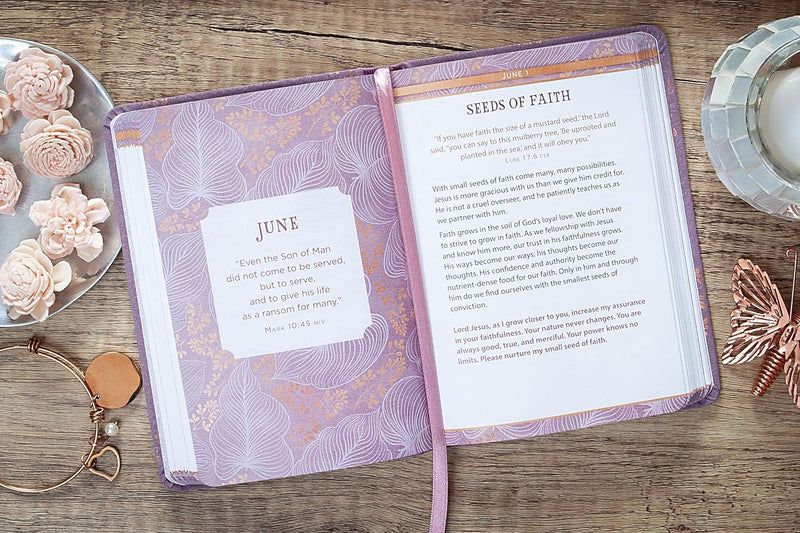 JUNE
"Even the Son of Man
did not come to be served,
but to serve,
and to give his life
as a ransom for many."
MARK 10:45 NIV
JUNE 1
SEEDS OF FAITH
"If you have faith the size of a mustard seed," the Lord
said, "you can say to this mulberry tree, 'Be uprooted and
planted in the sea,' and it will obey you."
LUKE 17:6 CSB
With small seeds of faith come many, many possibilities.
Jesus is more gracious with us than we give him credit for.
He is not a cruel overseer, and he patiently teaches us as
we partner with him.
Faith grows in the soil of God's loyal love. We don't have
to strive to grow in faith. As we fellowship with Jesus
and know him more, our trust in his faithfulness grows.
His ways become our ways; his thoughts become our
thoughts. His confidence and authority become the
nutrient-dense food for our faith. Only in him and through
him do we find ourselves with the smallest seeds of
conviction.
Lord Jesus, as I grow closer to you, increase my assurance
in your faithfulness. Your nature never changes. You are
always good, true, and merciful. Your power knows no
limits. Please nurture my small seed of faith.